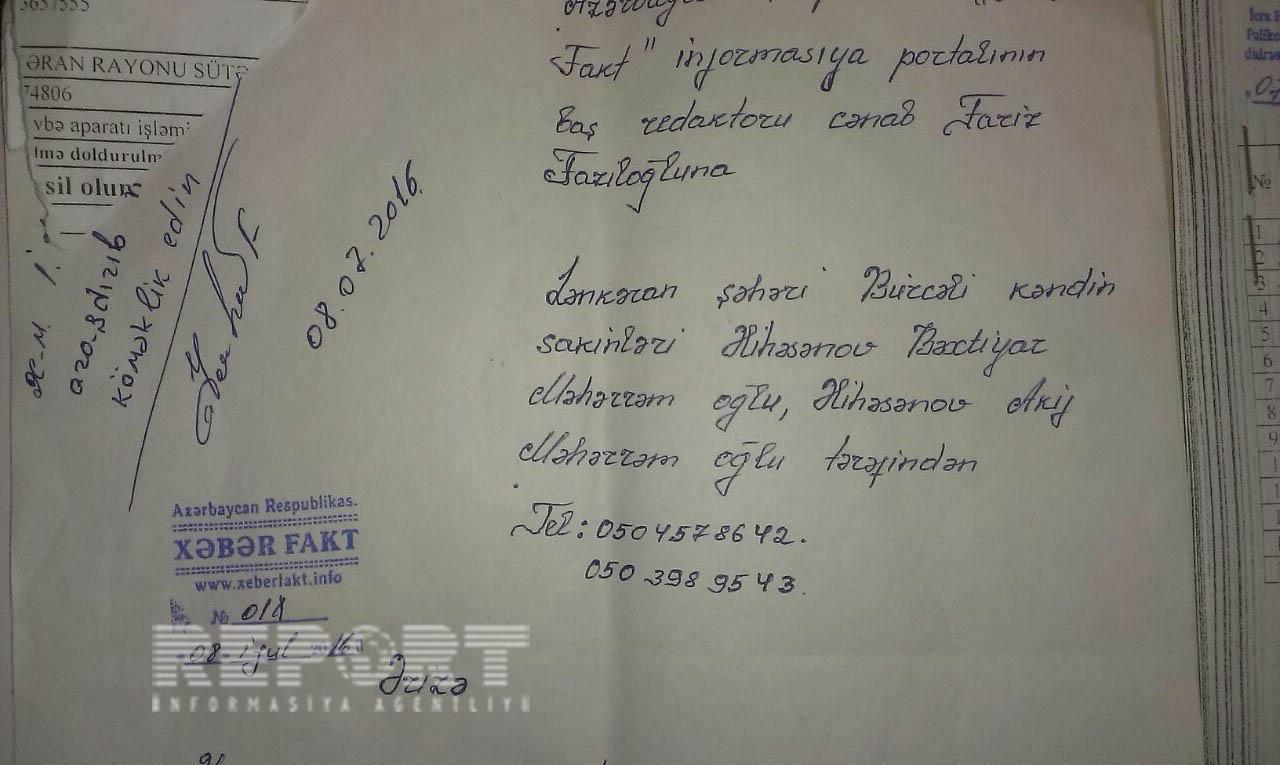 3657555
ƏRAN RAYONU SÜTƏ
74806
ybə aparatı işləmi
lmə doldurulm
sil olunr
araşdırıb
köməklik edin
08.07.2016.
Fakt" informasiya portalının
baş redaktoru cənab Fariz
Faziloğluna
Lənkəran şəhəri Bürcəli kəndin
sakinləri Hihəsənov Bəxtiyar
Məhərrəm oğlu, Hihəsənov Akif
Məhərrəm oğlu tərəfindən
Tel: 050 457 86 42.
050 398 95 43.
Azərbaycan Respublikas.
XƏBƏR FAKT
www.xeberfakt.info
№ 018
08 iyul 2016
REPORT
İNFORMASİYA AGENTLİYİ
Ərizə
№
1
2
3
4
5
6
7
8
9